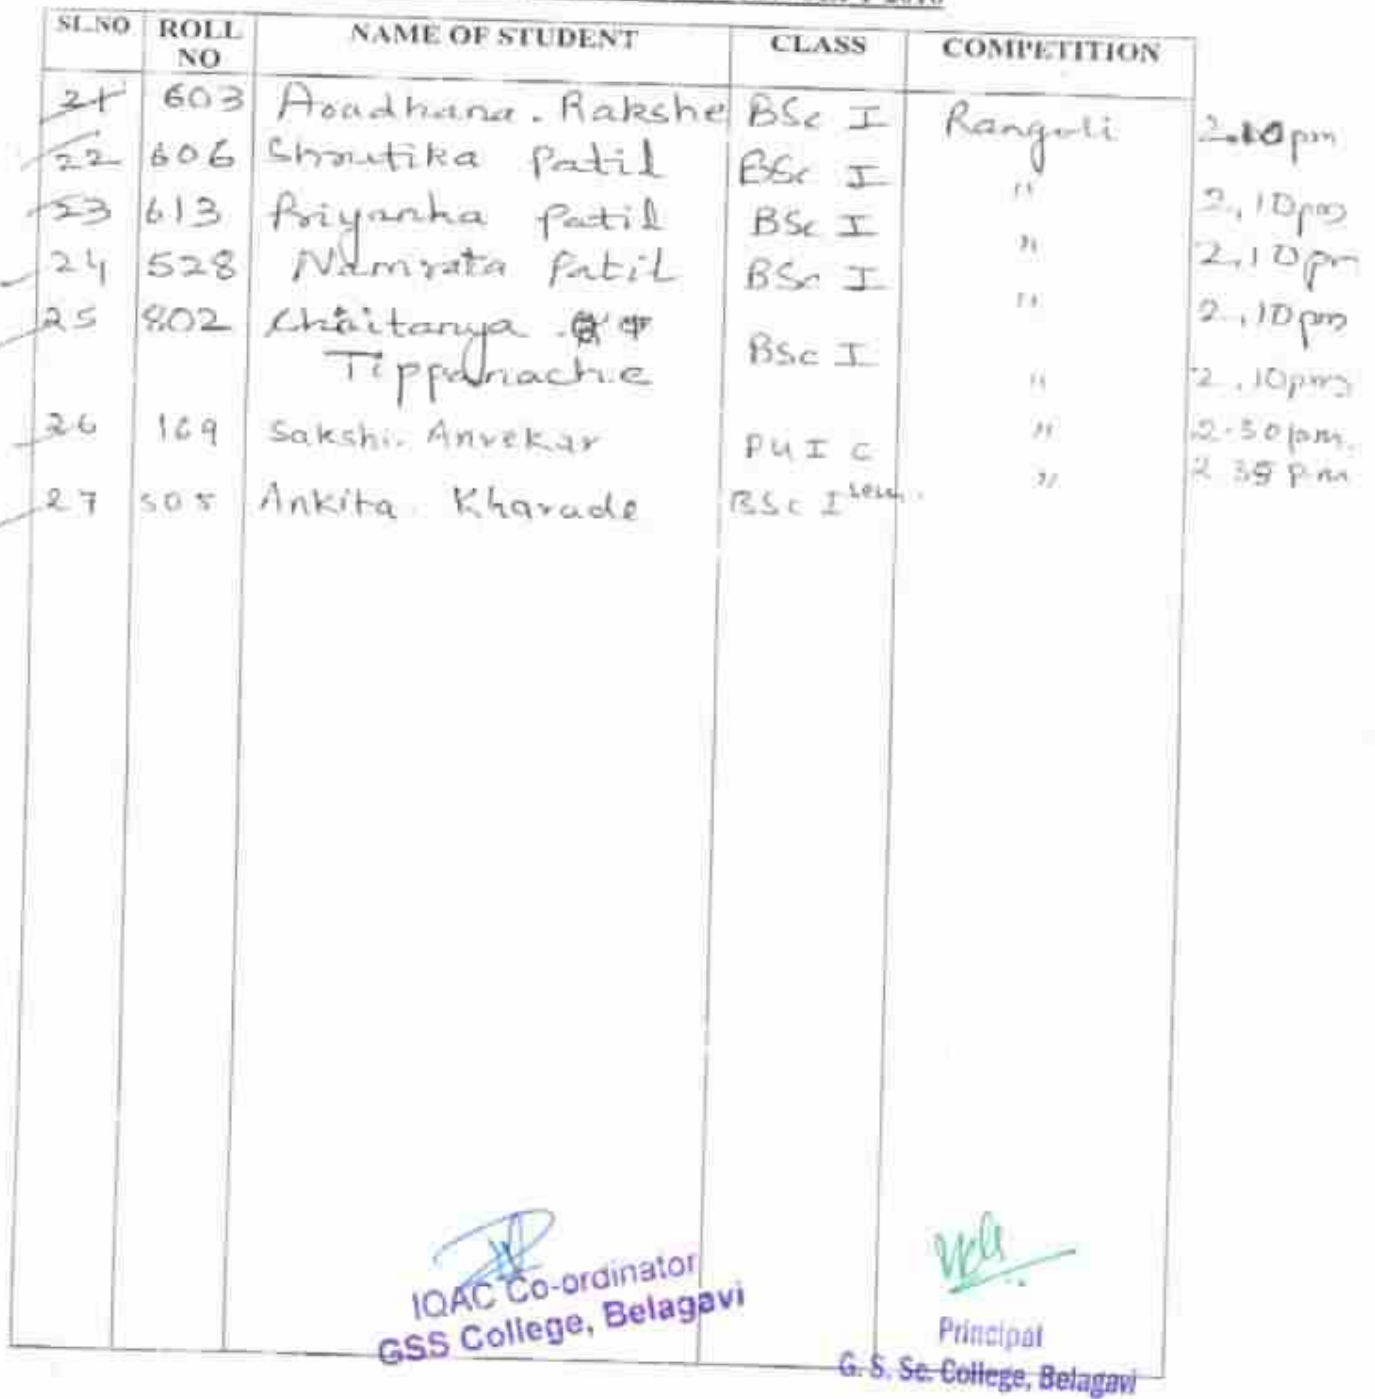 SL.NO ROLL NO NAME OF STUDENT CLASS COMPETITION
21 603 Aradhana. Rakshe BSc I Rangoli 2.10pm
22 606 Shrutika Patil BSc I " 2.10pm
23 613 Priyanka Patil BSc I " 2.10pm
24 528 Namrata Patil BSc I " 2.10pm
25 802 Chaitanya
Tippanache BSc I " 2.10pm
26 169 Sakshi. Anvekar PU I C " 2.30pm.
27 505 Ankita. Kharade BSc I sem. " 2 35 pm
IQAC Co-ordinator
GSS College, Belagavi
Principal
G. S. Sc. College, Belagavi